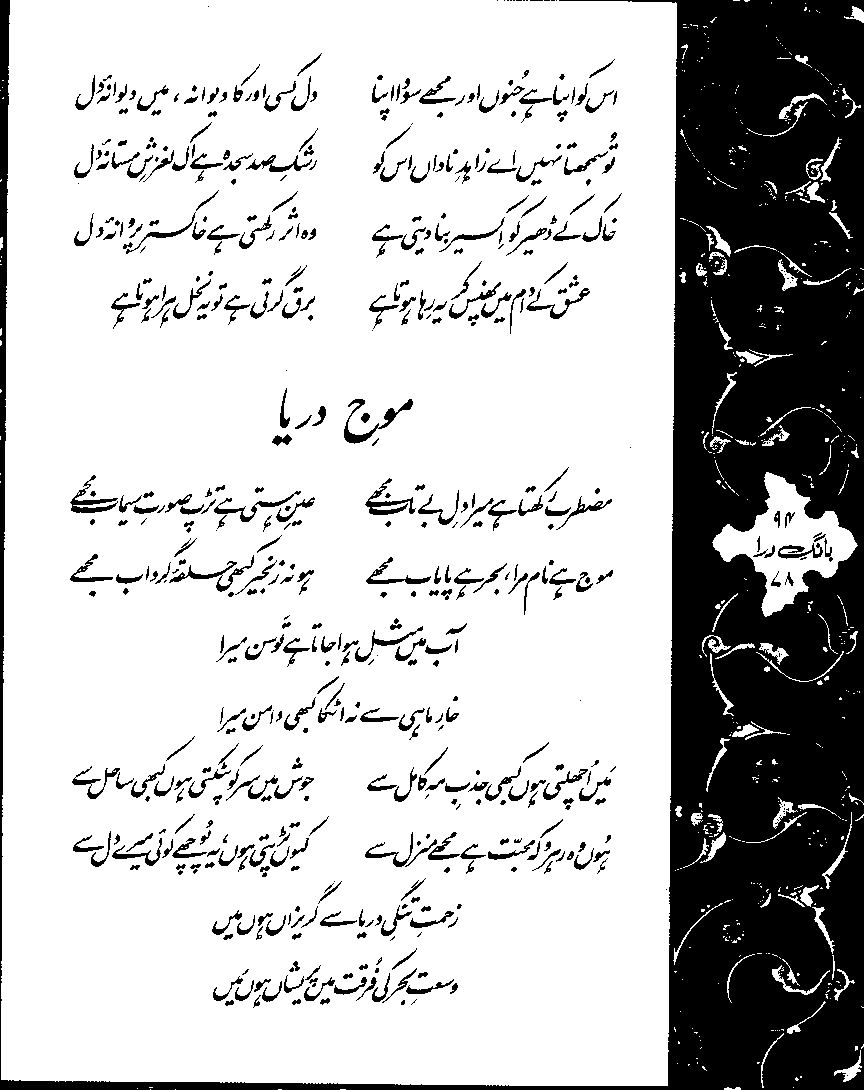 اس کو اپنا ہے جُنوں اور مجھے سودا اپنا دل کسی اور کا دیوانہ، میں دیوانۂ دل
تُو سمجھتا نہیں اے زاہدِ ناداں اس کو رشکِ صد سجدہ ہے اک لغزشِ مستانۂ دل
خاک کے ڈھیر کو اکسیر بنا دیتی ہے وہ اثر رکھتی ہے خاکسترِ پروانۂ دل
عشق کے دام میں پھنس کر یہ رہا ہوتا ہے برق گرتی ہے تو یہ نخل ہرا ہوتا ہے
موجِ دریا
مضطرب رکھتا ہے میرا دلِ بے تاب مجھے عینِ ہستی ہے تڑپ صورتِ سیماب مجھے
موج ہے نام مرا، بحر ہے پایاب مجھے ہو نہ زنجیر کبھی حلقۂ گرداب مجھے
آب میں مثلِ ہوا جاتا ہے تَوسن میرا
خارِ ماہی سے نہ اٹکا کبھی دامن میرا
مَیں اُچھلتی ہوں کبھی جذبِ مہِ کامل سے جوش میں سر کو پٹکتی ہوں کبھی ساحل سے
ہُوں وہ رہرو کہ محبّت ہے مجھے منزل سے کیوں تڑپتی ہوں، یہ پُوچھے کوئی میرے دل سے
زحمتِ تنگیِ دریا سے گریزاں ہوں مَیں
وسعتِ بحر کی فُرقت میں پریشاں ہوں مَیں
۹۴
بانگِ درا
۷۸